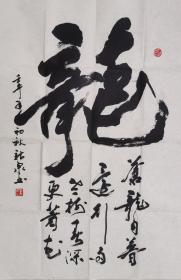 龍
蒼龍日暮
還行雨
老樹春深
更著花
年初秋 书